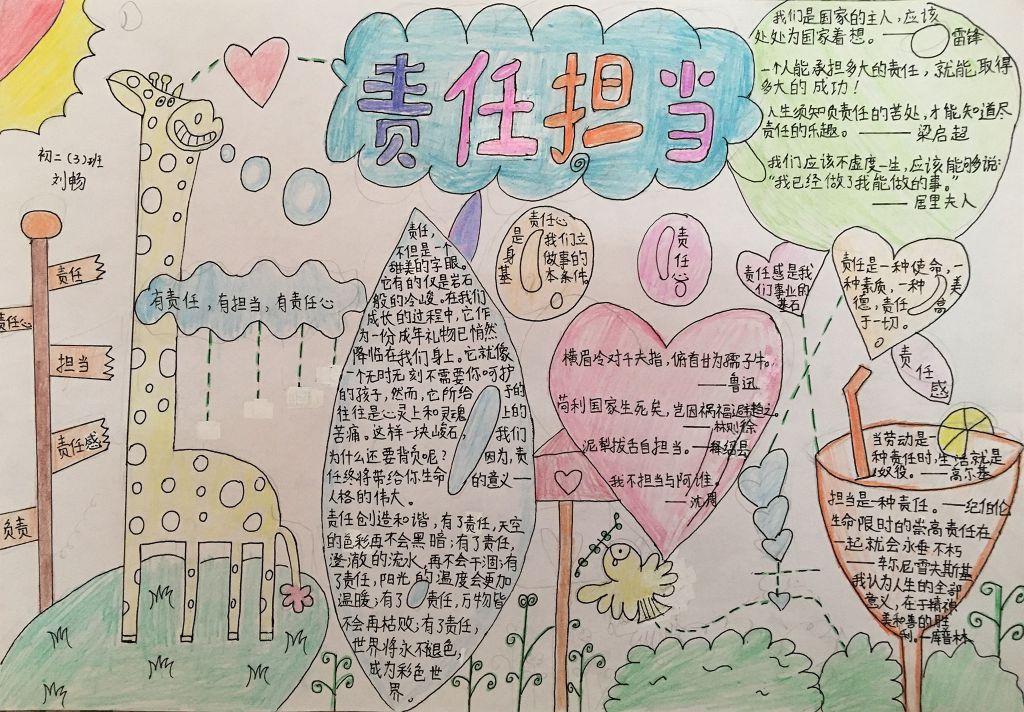 责任担当
我们是国家的主人，应该
处处为国家着想。——雷锋
一个人能承担多大的责任，就能取得
多大的成功！
人生须知负责任的苦处，才能知道尽
责任的乐趣。——梁启超
我们应该不虚度一生，应该能够说：
“我已经做了我能做的事。”
——居里夫人
初二（3）班
刘畅
责任
责任心
担当
责任感
负责
有责任，有担当，有责任心
责任，
不但是一个
甜美的字眼。
它有的仅是岩石
般的冷峻。在我们
成长的过程中，它作
为一份成年礼物已悄然
降临在我们身上。它就像
一个无时无刻不需要你呵护
的孩子，然而，它所给予的
往往是心灵上和灵魂上的
苦痛。这样一块峻石，我们
为什么还要背负呢？因为，责
任终将带给你生命的意义——
人格的伟大。
责任创造和谐，有了责任，天空
的色彩再不会黑暗；有了责任，
澄澈的流水，再不会干涸；有
了责任，阳光的温度会更加
温暖；有了责任，万物皆
不会再枯败；有了责任，
世界将永不褪色，
成为彩色世
界。
责任心
是我们立
身做事的
基本条件
责
任
心
责任感是我
们事业的
基石
责任是一种使命，一
种素质，一种美
德，责任高
于一切。
责
任
感
横眉冷对千夫指，俯首甘为孺子牛。
——鲁迅
苟利国家生死矣，岂因祸福避趋之。
——林则徐
泥犁拔舌自担当。——释绍昙
我不担当与阿谁。
——沈周
当劳动是一
种责任时，生活就是
奴役。——高尔基
担当是一种责任。——纪伯伦
生命限时的崇高责任在
一起就会永垂不朽
——车尔尼雪夫斯基
我认为人生的全部
意义，在于精神
美和善的胜
利。